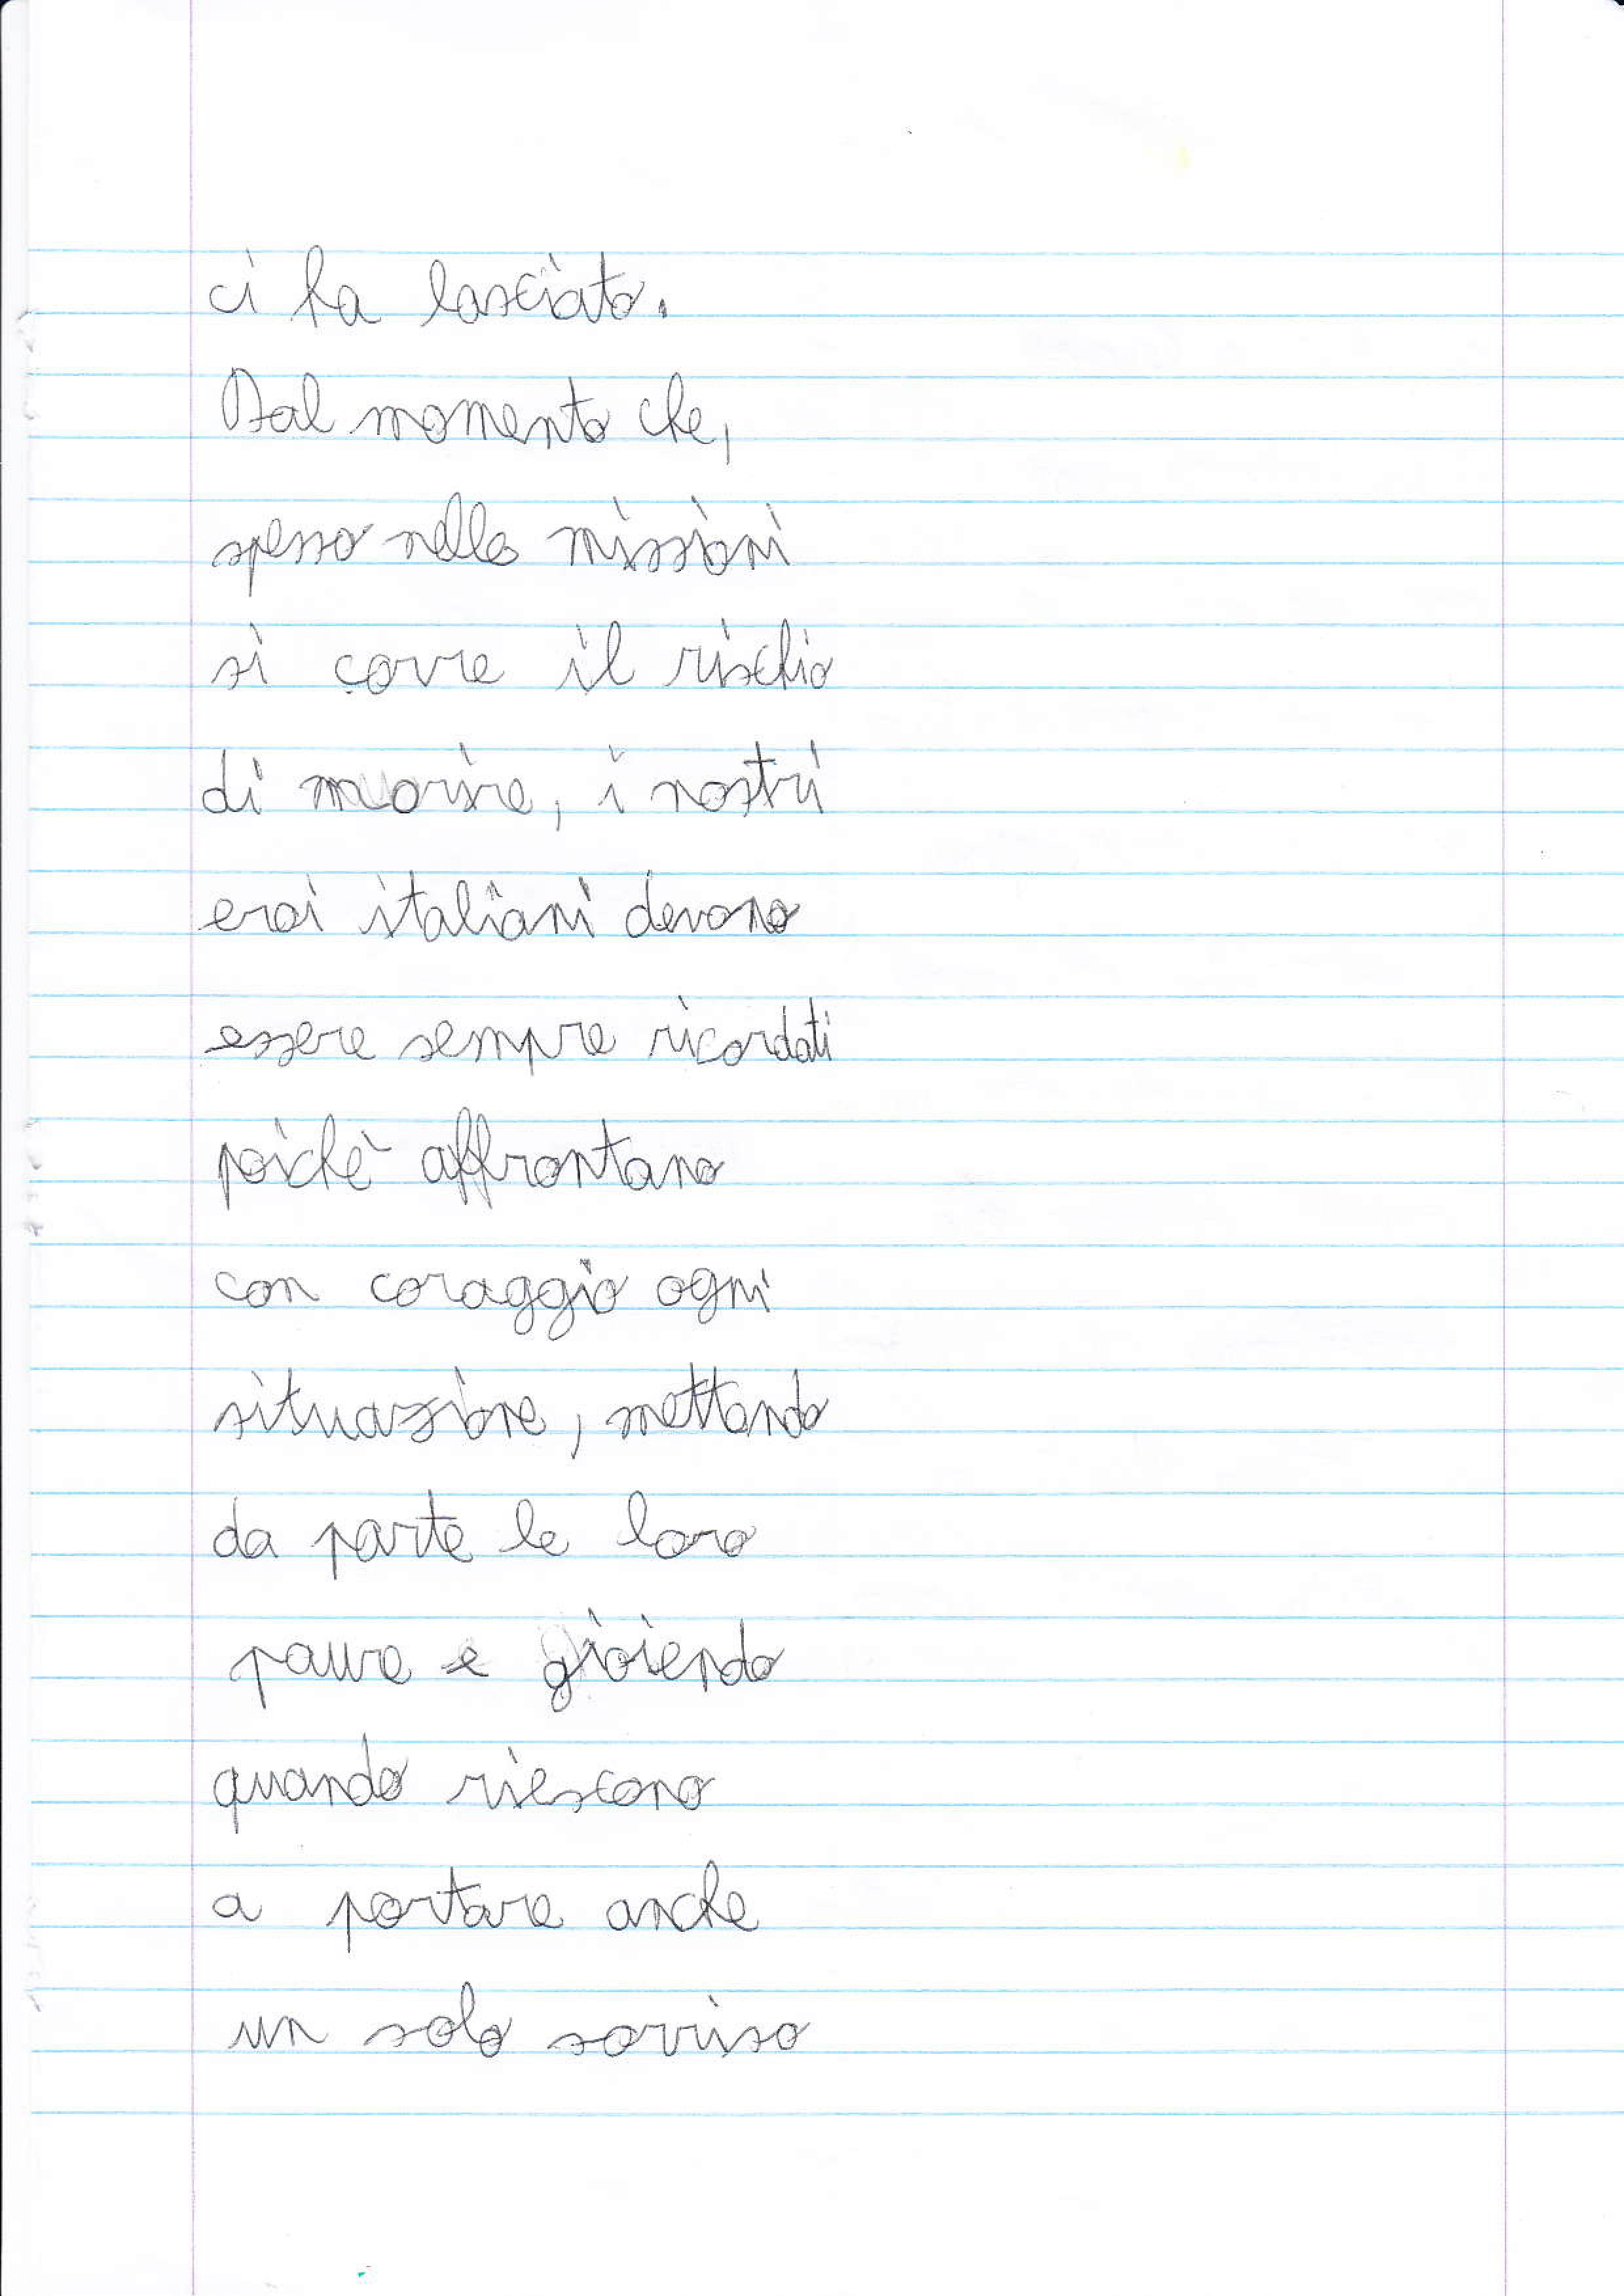 ci ha lasciato.
Dal momento che,
spesso nelle missioni
si corre il rischio
di morire, i nostri
eroi italiani devono
essere sempre ricordati
poichè affrontano
con coraggio ogni
situazione, mettendo
da parte le loro
paure e gioiendo
quando riescono
a portare anche
un solo sorriso